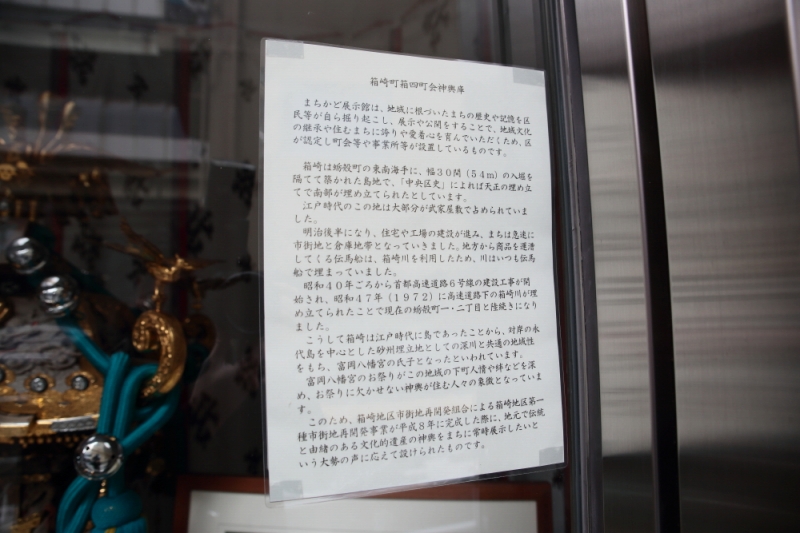 箱崎町箱四町会神輿庫
まちかど展示館は、地域に根づいたまちの歴史や記憶を区
民等が自ら掘り起こし、展示や公開をすることで、地域文化
の継承や住むまちに誇りや愛着心を育んでいただくため、区
が認定し町会等や事業所等が設置しているものです。
箱崎は蛎殻町の東南海手に、幅30間(54m)の入堀を
隔てて築かれた島地で、「中央区史」によれば天正の埋め立
てで南部が埋め立てられたとしています。
江戸時代のこの地は大部分が武家屋敷で占められていま
した。
明治後半になり、住宅や工場の建設が進み、まちは急速に
市街地と倉庫地帯となっていきました。地方から商品を運漕
してくる伝馬船は、箱崎川を利用したため、川はいつも伝馬
船で埋まっていました。
昭和40年ごろから首都高速道路6号線の建設工事が開
始され、昭和47年(1972)に高速道路下の箱崎川が埋
め立てられたことで現在の蛎殻町一・二丁目と陸続きになり
ました。
こうして箱崎は江戸時代に島であったことから、対岸の永
代島を中心とした砂州埋立地としての深川と共通の地域性
をもち、富岡八幡宮の氏子となったといわれています。
富岡八幡宮のお祭りがこの地域の下町人情や絆などを深
め、お祭りに欠かせない神輿が住む人々の象徴となっていま
す。
このため、箱崎地区市街地再開発組合による箱崎地区第一
種市街地再開発事業が平成8年に完成した際に、地元で伝統
と由緒のある文化的遺産の神輿をまちに常時展示したいと
いう大勢の声に応えて設けられたものです。